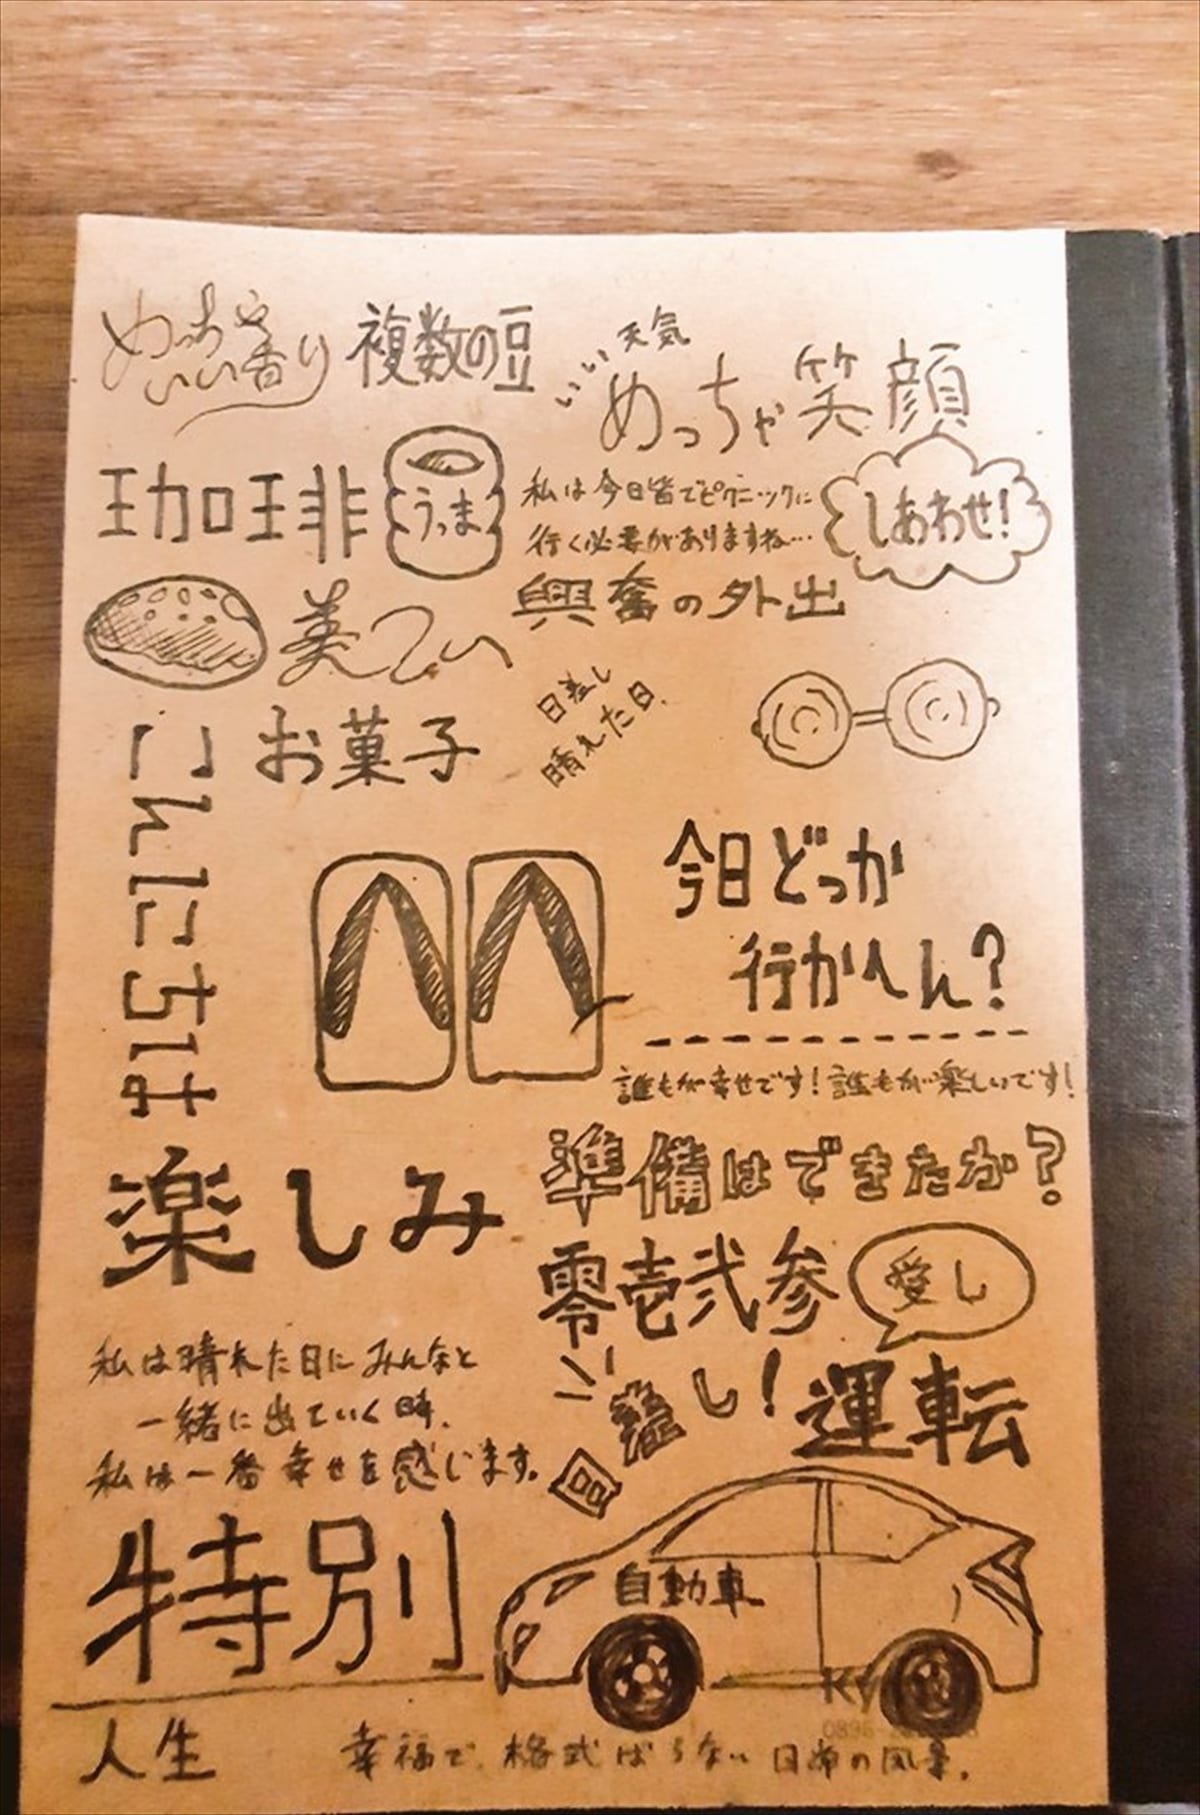 めっちゃ
いい香り
複数の豆
いい天気
めっちゃ笑顔
珈琲
うっま
私は今日皆でピクニックに
行く必要がありますね…
しあわせ!
興奮の外出
お菓子
日差し
晴れた日
こんにちは
今日どっか
行かへん?
誰もが幸せです!誰もが楽しいです!
楽しみ
準備はできたか?
零壱弐参
愛し
私は晴れた日にみんなと
一緒に出ていく時、
私は一番幸せを感じます。
し!
運転
特別
自動車
人生
幸福で、格式ばらない日常の風景。